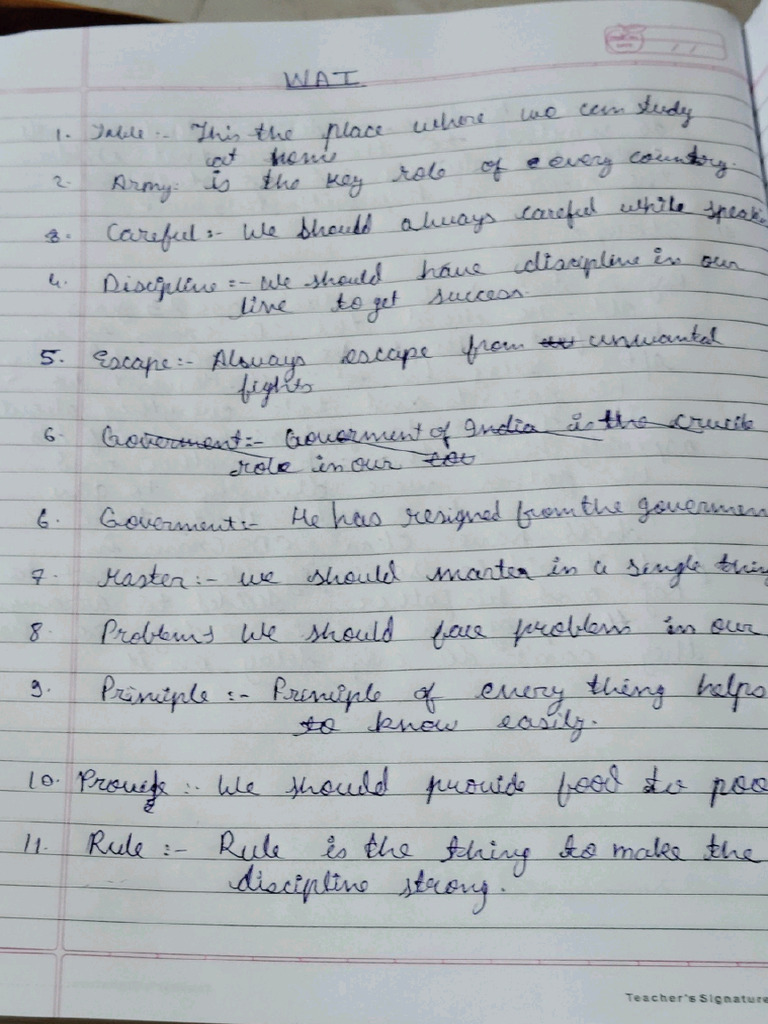 WAT
1. Table :- This the place where we can study
at home
2. Army: is the key role of every country.
3. Careful :- We should always careful while
4. Discipline :- We should have discipline in our
live to get success.
5. Escape :- Always escape from unwanted
fights
6. Goverment :- Goverment of India is the crucile
role in our
6. Goverment :- He has resigned from the
7. Master :- we should master in a single
8 Problems We should face problem in our
9. Principle :- Principle of every thing helps
to know easily.
10. Provide :- We should provide food to
11. Rule :- Rule is the thing to make the
discipline strong.
Teacher's Signature